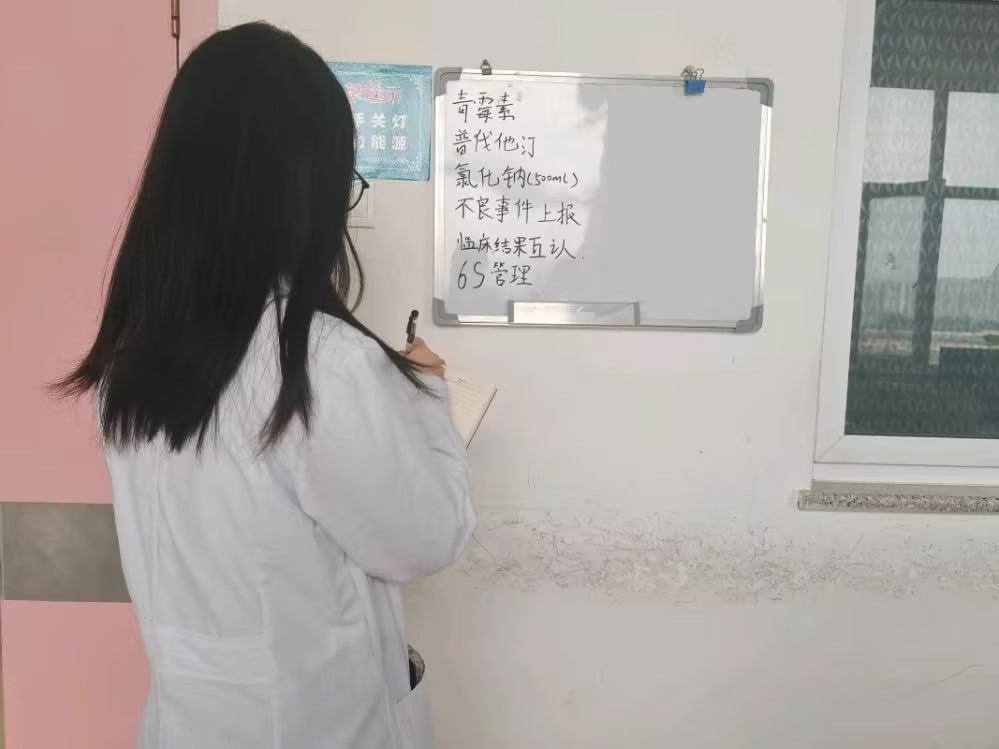 手关灯
能源
青霉素
普伐他汀
氯化钠(500ml)
不良事件上报
临床结果互认.
6S管理